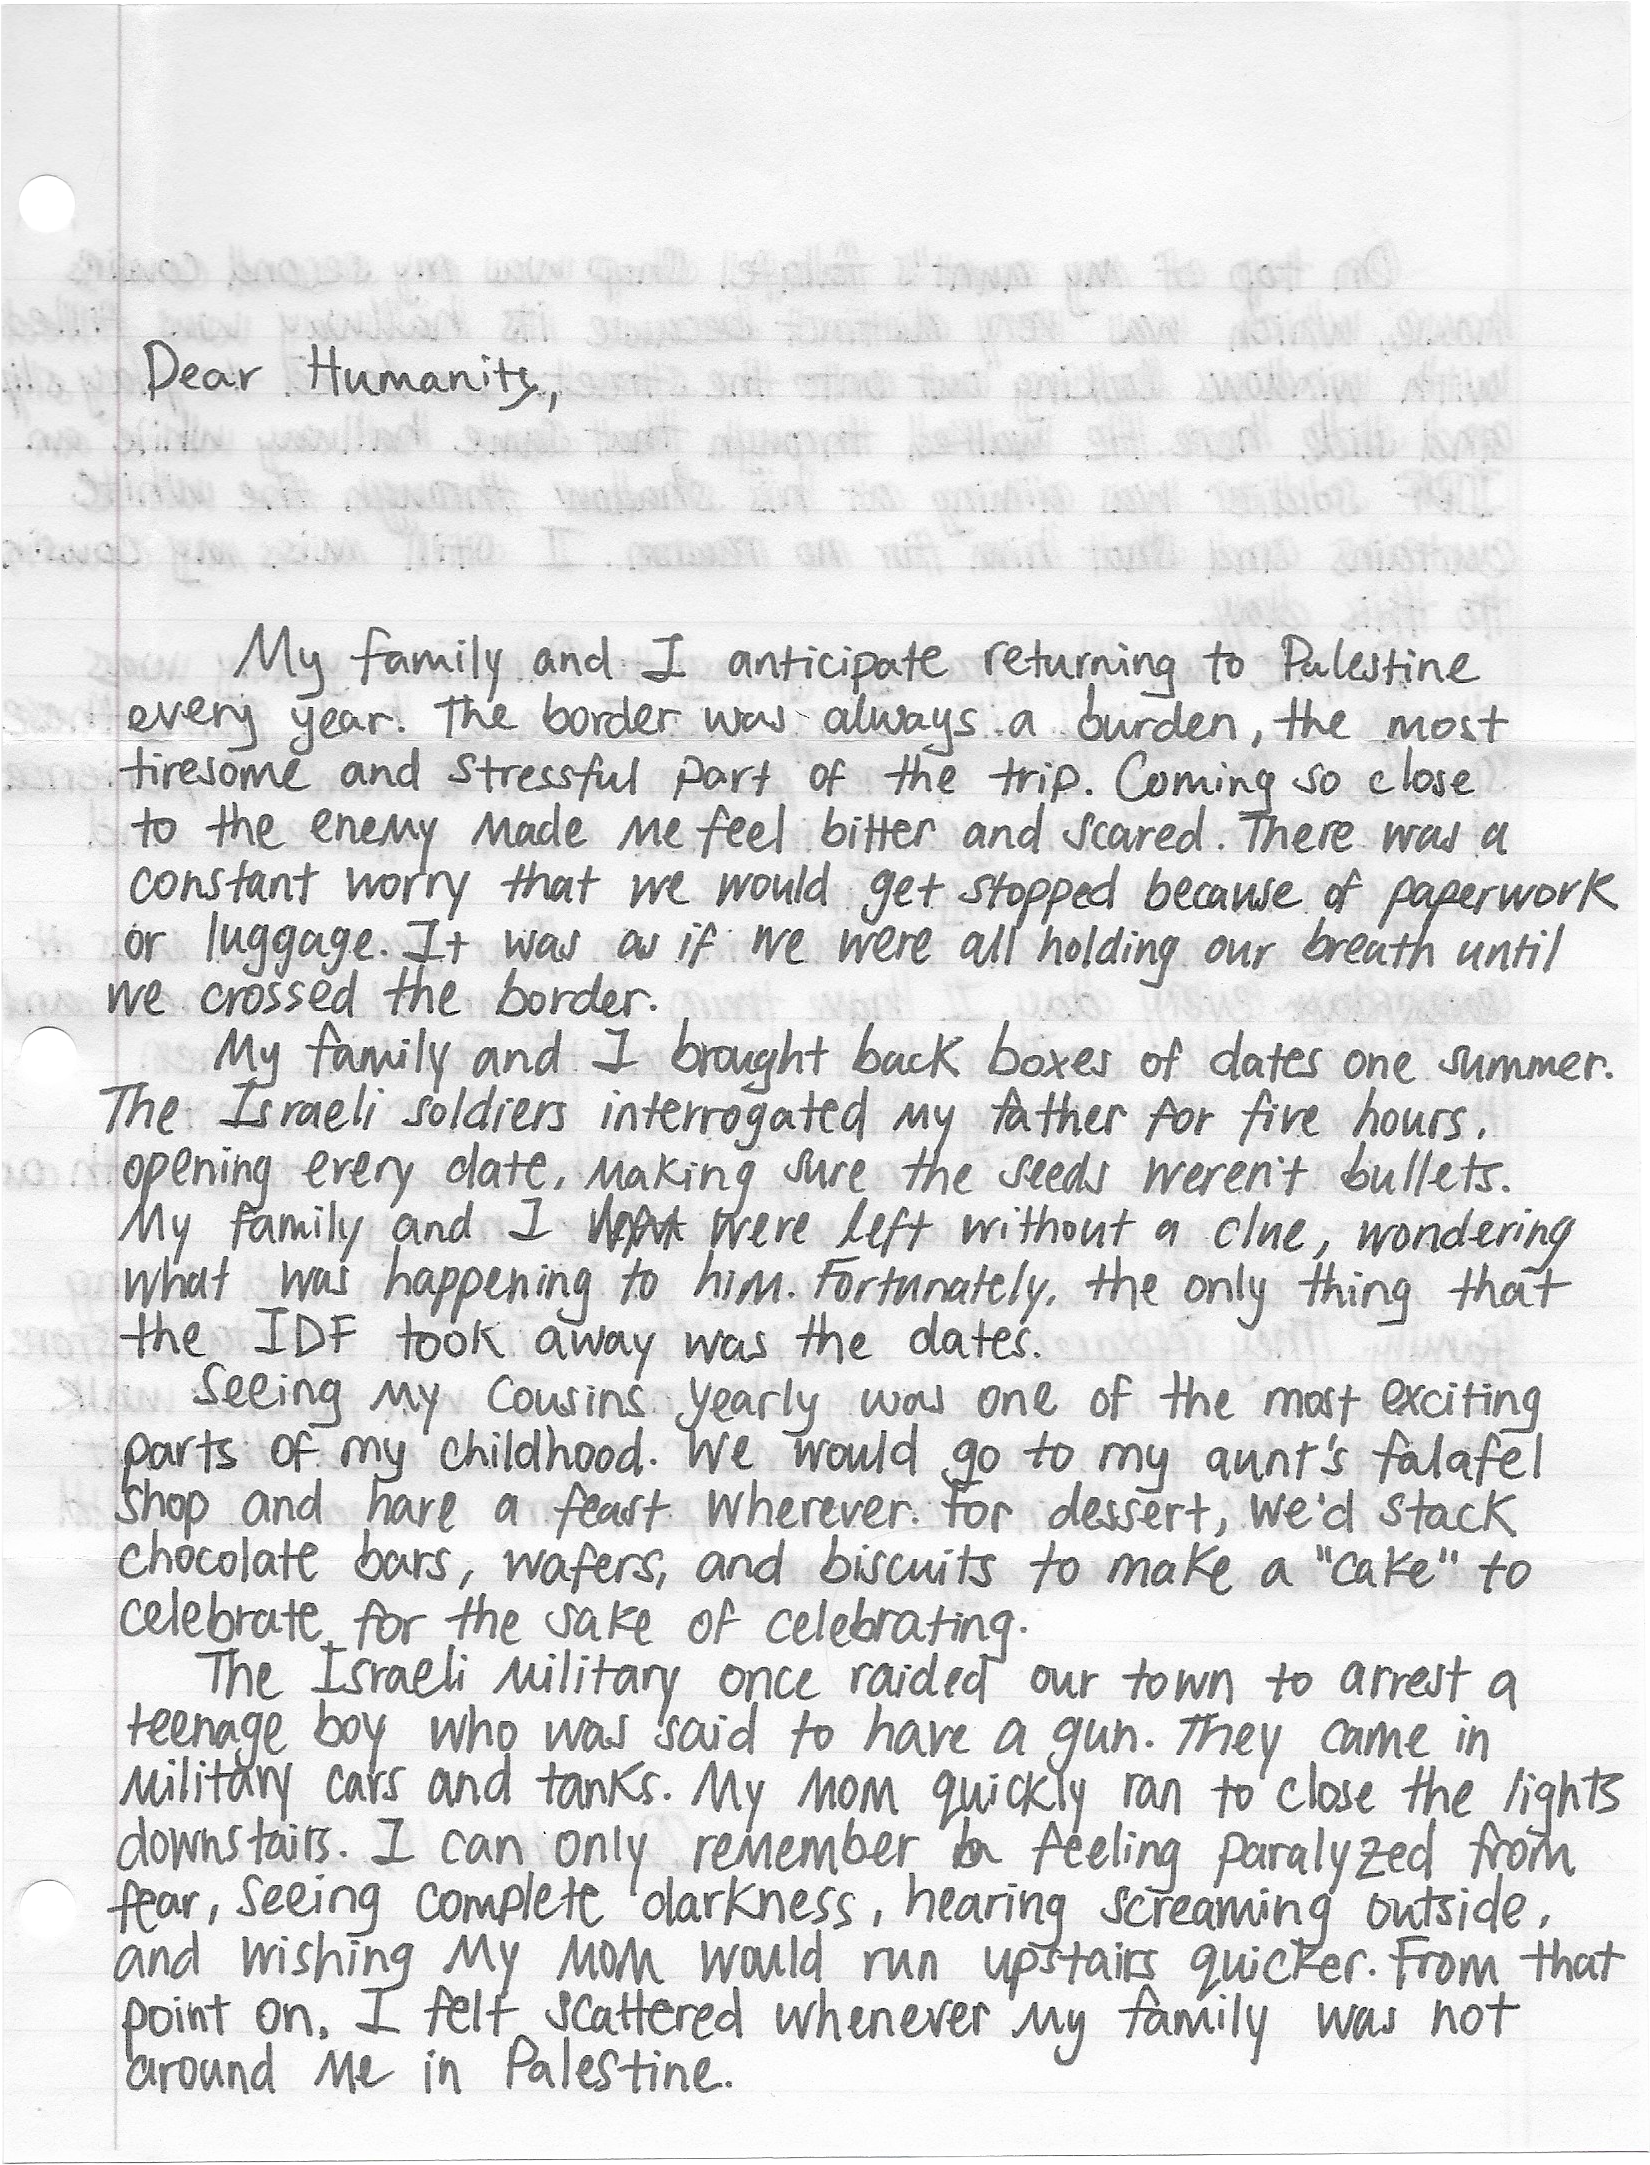 Dear Humanity,
My family and I anticipate returning to Palestine
every year. The border was always a burden, the most
tiresome and stressful part of the trip. Coming so close
to the enemy made me feel bitter and scared. There was a
constant worry that we would get stopped because of paperwork
or luggage. It was as if we were all holding our breath until
we crossed the border.
My family and I brought back boxes of dates one summer.
The Israeli soldiers interrogated my father for five hours,
opening every date, making sure the seeds weren't bullets.
My family and I were left without a clue, wondering
what was happening to him. Fortunately, the only thing that
the IDF took away was the dates.
Seeing my cousins yearly was one of the most exciting
parts of my childhood. We would go to my aunt's falafel
shop and have a feast wherever. For dessert, we'd stack
chocolate bars, wafers, and biscuits to make a "cake" to
celebrate for the sake of celebrating.
The Israeli military once raided our town to arrest a
teenage boy who was said to have a gun. They came in
military cars and tanks. My mom quickly ran to close the lights
downstairs. I can only remember feeling paralyzed from
fear, seeing complete darkness, hearing screaming outside,
and wishing my mom would run upstairs quicker. From that
point on, I felt scattered whenever my family was not
around me in Palestine.